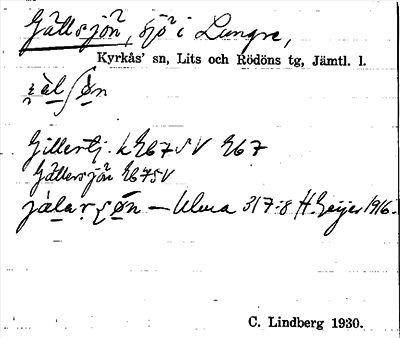 Gällsjön, sjö i Lungre,
Kyrkås' sn, Lits och Rödöns tg, Jämtl. l.
Gillertj. k Eb7SV Eb7
Gällersjön Eb7SV
— Ulma 317:8 H. Geijer 1916.
C. Lindberg 1930.